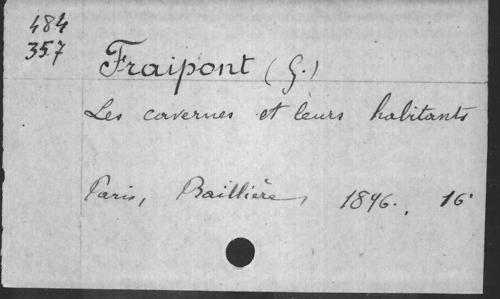 484
357
Fraipont (G.)
Les cavernes et leurs habitants
Paris, Baillière, 1896. 16°